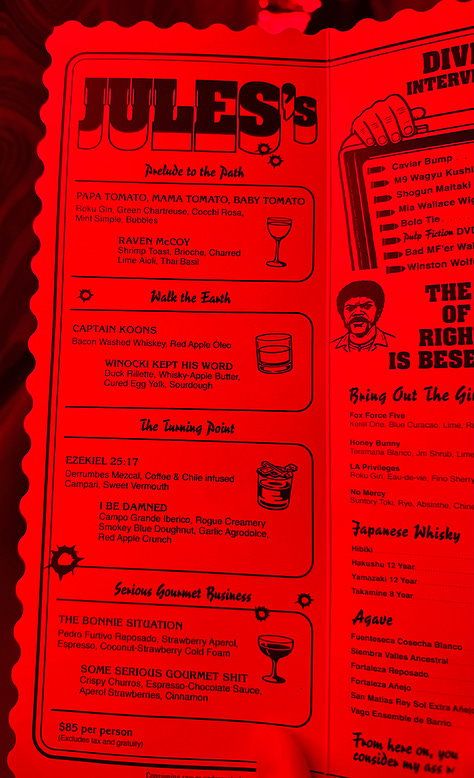 JULES's
Prelude to the Path
PAPA TOMATO, MAMA TOMATO, BABY TOMATO
Roku Gin, Green Chartreuse, Cocchi Rosa,
Mint Simple, Bubbles
RAVEN McCOY
Shrimp Toast, Brioche, Charred
Lime Aioli, Thai Basil
Walk the Earth
CAPTAIN KOONS
Bacon Washed Whiskey, Red Apple Oleo
WINOCKI KEPT HIS WORD
Duck Rillette, Whisky-Apple Butter,
Cured Egg Yolk, Sourdough
The Turning Point
EZEKIEL 25:17
Derrumbes Mezcal, Coffee & Chile Infused
Campari, Sweet Vermouth
I BE DAMNED
Campo Grande Iberico, Rogue Creamery
Smokey Blue Doughnut, Garlic Agrodolce,
Red Apple Crunch
Serious Gourmet Business
THE BONNIE SITUATION
Pedro Furtivo Reposado, Strawberry Aperol,
Espresso, Coconut-Strawberry Cold Foam
SOME SERIOUS GOURMET SHIT
Crispy Churros, Espresso-Chocolate Sauce,
Aperol Strawberries, Cinnamon
$85 per person
(Excludes tax and gratuity)
DIV
INTERV
Caviar Bump
M9 Wagyu Kushi
Shogun Maitaki
Mia Wallace Wig
Bolo Tie
Pulp Fiction DVD
Bad MF'er Wal
Winston Wolf
THE
OF
RIGH
IS BESE
Bring Out The Gi
Fox Force Five
Ketel One, Blue Curacao, Lime, Ra
Honey Bunny
Teremana Blanco, Jim Shrub, Lime
LA Privileges
Roku Gin, Eau-de-vie, Fino Sherry
No Mercy
Suntory Toki, Rye, Absinthe, Chin
Japanese Whisky
Hibiki
Hakushu 12 Year
Yamazaki 12 Year
Takamine 8 Year
Agave
Fuenteseca Cosecha Blanco
Siembra Valles Ancestral
Fortaleza Reposado
Fortaleza Añejo
San Matias Rey Sol Extra Añejo
Vago Ensemble de Barrio
From here on, you
consider my ass